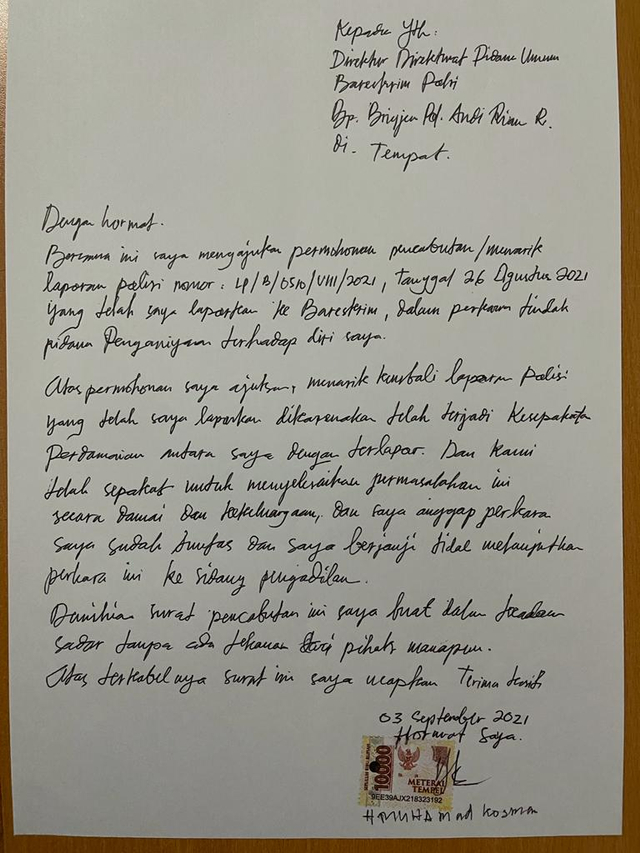 Kepada Yth:
Direktur Direktorat Pidana Umum
Bareskrim Polri
Bp. Brigjen Pol. Andi Rian R.
di- Tempat.
Dengan hormat.
Bersama ini saya mengajukan permohonan pencabutan/menarik
laporan polisi nomor: LP/B/0510/VIII/2021, tanggal 26 Agustus 2021
yang telah saya laporkan ke Bareskrim, dalam perkara tindak
pidana Penganiyaan terhadap diri saya.
Atas permohonan saya ajukan, menarik kembali laporan Polisi
yang telah saya laporkan dikarenakan telah terjadi Kesepakatan
Perdamaian antara saya dengan terlapor. Dan Kami
telah sepakat untuk menyelesaikan permasalahan ini
secara damai dan kekeluargaan, dan saya anggap perkara
saya sudah tuntas dan saya berjanji tidak melanjutkan
perkara ini ke sidang pengadilan.
Demikian surat pencabutan ini saya buat dalam keadaan
sadar tanpa ada tekanan dari pihak manapun.
Atas terkabelnya surat ini saya ucapkan Terima kasih
03 September 2021
Hormat Saya.
10000
METERAI
TEMPEL
9EE39AJX218323192
Kosman